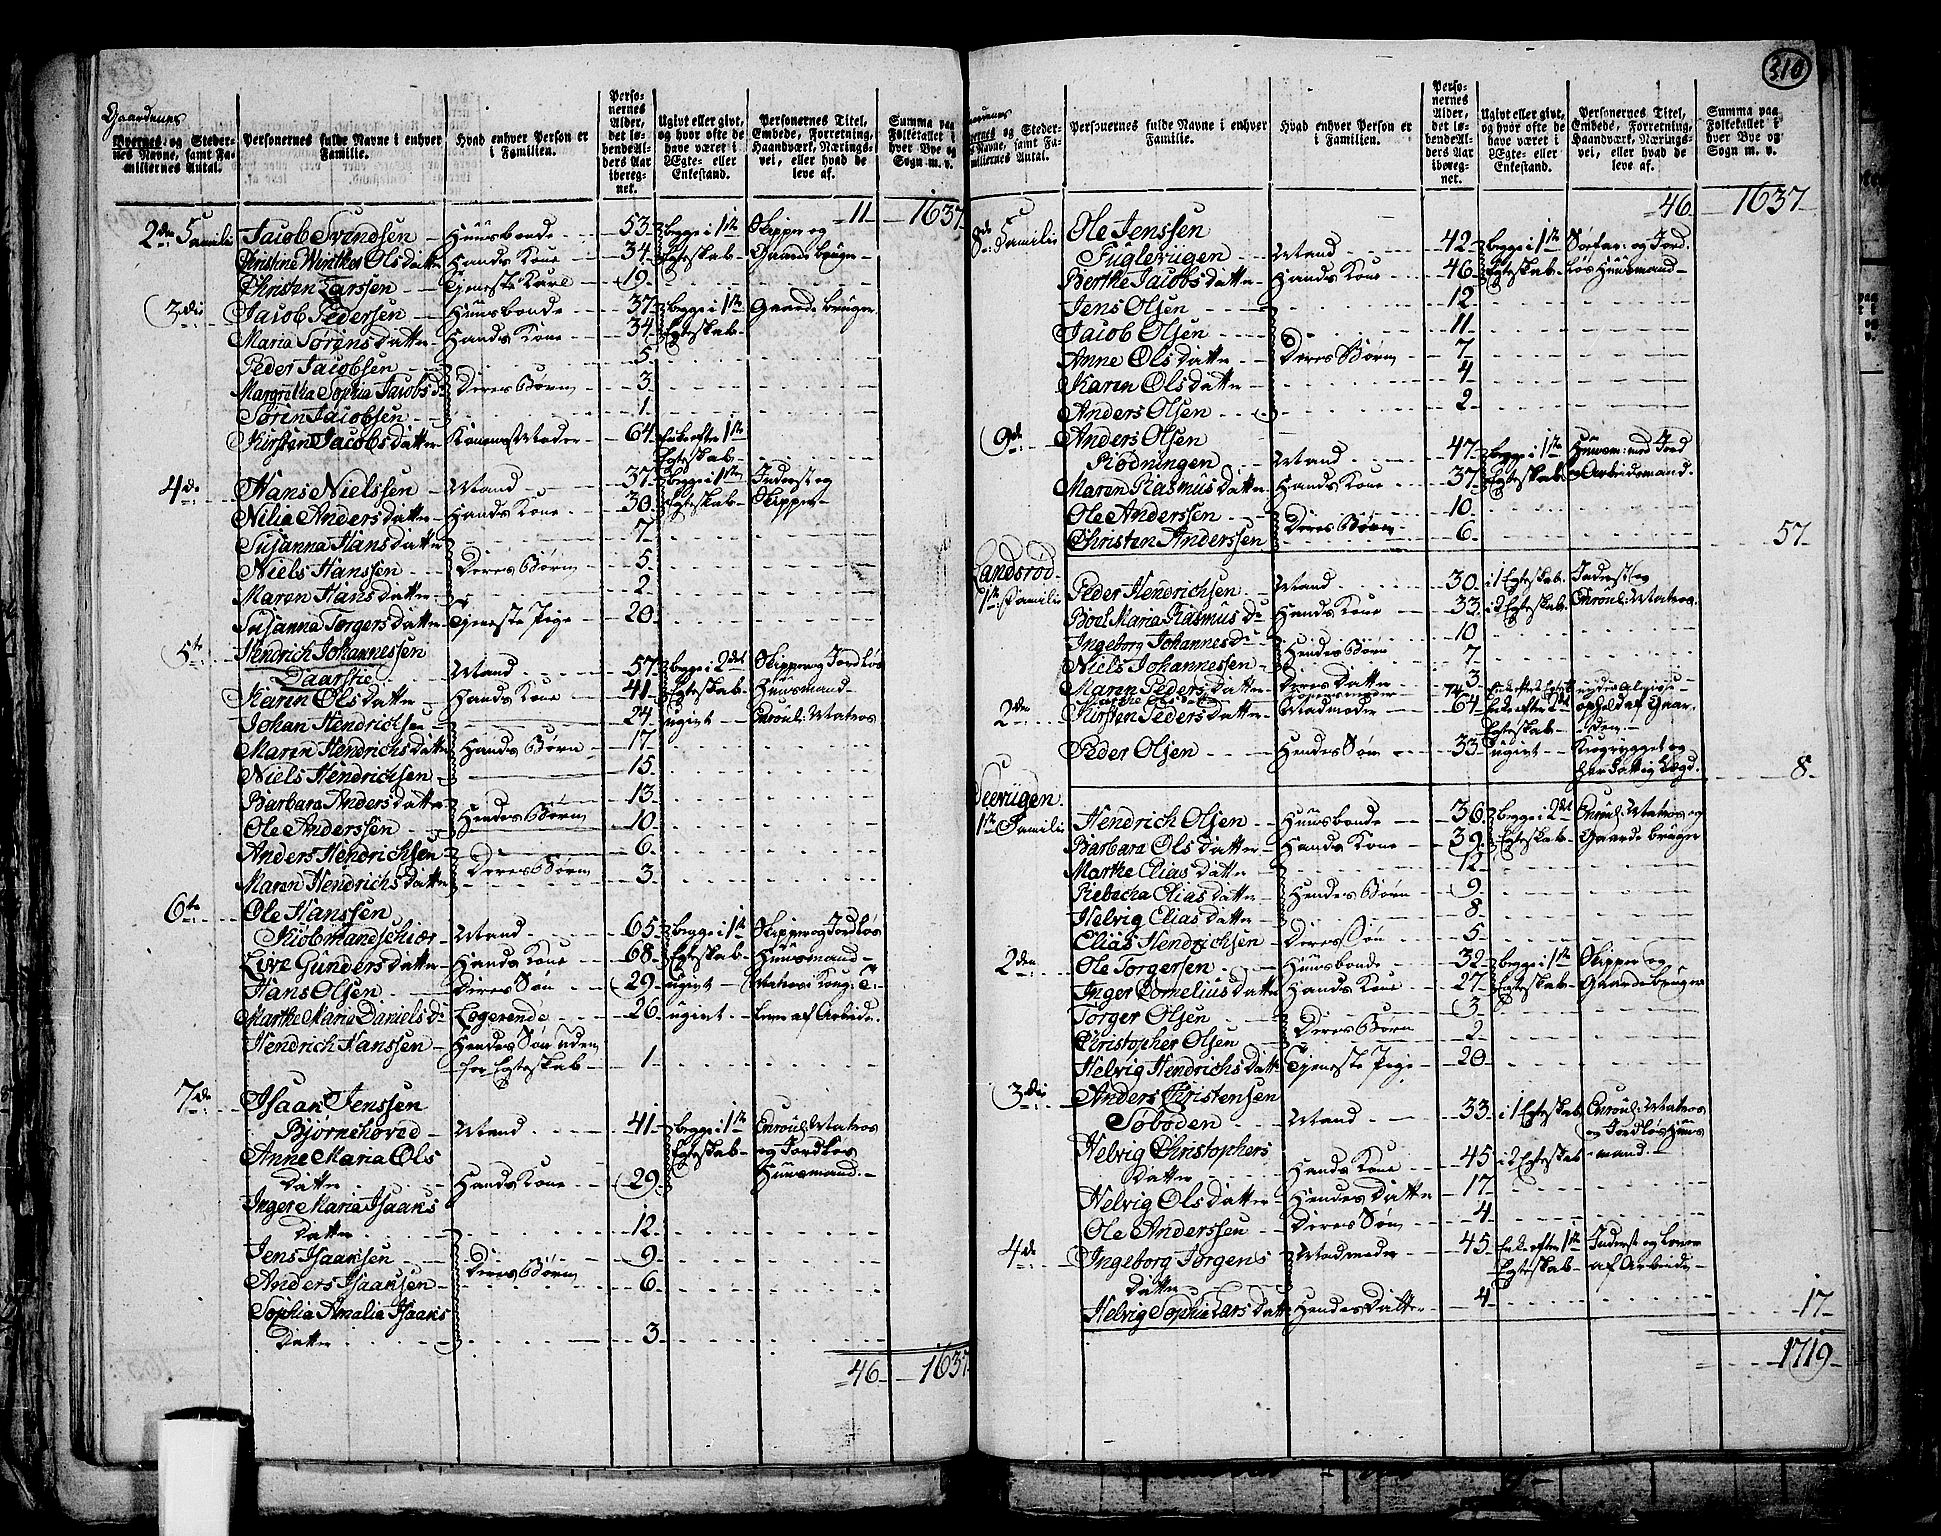 Gaardenes
Byernes og Stedernes Navne, samt Familiernes Antal.
Personernes fulde Navne i enhver Familie.
Hvad enhver Person er i Familien.
Personernes Alder, det løbende Alders Aar iberegnet.
Ugivt eller givt, og hvor ofte de have været i Ægte- eller Enkestand.
Personernes Titel, Embede, Forretning, Haandværk, Næringsvei, eller hvad de leve af.
Summa paa Folketallet i hver Bye og Sogn m. v.
11 1637
2den Familie Jacob Svendsen Huusbonde 53 begge i 1ste Skipper og
Christine Winther Olsdatter Hands Kone 34 Egteskab Gaardebruger
Christen Larssen Tjeneste Karl 19
3die Jacob Pedersen Huusbonde 37 begge i 1ste Gaardebruger
Maria Sørensdatter Hands Kone 34 Egteskab
Peder Jacobsen 5
Margretha Sophia Jacobs Dr Deres Børn 3
Søren Jacobsen 1
Kirsten Jacobsdatter Konens Moder 64 Enke efter 1ste
Egteskab
4de Hans Nielssen Mand 37 begge i 1ste Inderst og
Nilia Andersdatter Hands Kone 30 Egteskab Skipper
Susanna Hansdatter 7
Niels Hanssen Deres Børn 5
Maren Hansdatter 2
Susanna Torgersdatter Tjeneste Pige 20
5te Hendrich Johannessen
Daarskie Mand 57 begge i 2det Skipper og Jordløs
Karen Olsdatter Hands Kone 41 Egteskab Huusmand
Johan Hendrichsen 24 ugivt Enroul: Matros
Maren Hendrichsdatter Hands Børn 17
Niels Hendrichsen 15
Barbara Andersdatter 13
Ole Anderssen Hendes Børn 10
Anders Hendrichsen 6
Maren Hendrichsdatter Deres Børn 3
6te Ole Hanssen
Kiøbmandschiær Mand 65 begge i 1ste Skipper og Jordløs
Live Gundersdatter Hands Kone 68 Egteskab Huusmand
Hans Olsen Deres Søn 29 ugivt Matros i Kong: T:
Marthe Maria Daniels Dr Logerende 26 ugivt Lever af Arbeide
Hendrich Hanssen Hendes Søn uden
for Egteskab 1
7de Isaak Jenssen
Bjørnehoved Mand 41 begge i 1ste Enroul: Matros
Anne Maria Ols Egteskab og Jordløs
Datter Hands Kone 29 Huusmand
Inger Maria Isaaks
Datter 12
Jens Isaaksen 9
Anders Isaaksen Deres Børn 6
Sophia Amalia Isaaks
Datter 3
46 1637
310
Gaardenes
Byernes og Stedernes Navne, samt Familiernes Antal.
Personernes fulde Navne i enhver Familie.
Hvad enhver Person er i Familien.
Personernes Alder, det løbende Alders Aar iberegnet.
Ugivt eller givt, og hvor ofte de have været i Ægte- eller Enkestand.
Personernes Titel, Embede, Forretning, Haandværk, Næringsvei, eller hvad de leve af.
Summa paa Folketallet i hver Bye og Sogn m. v.
46 1637
8de Familie Ole Jenssen
Fuglevigen Mand 42 begge i 1ste Søefar: og Jord
Berthe Jacobsdatter Hands Kone 46 Egteskab løs Huusmand
Jens Olsen 12
Jacob Olsen 11
Anne Olsdatter Deres Børn 7
Karen Olsdatter 4
Anders Olsen 2
9de Anders Olsen
Rødningen Mand 47 begge i 1ste Huusm: med Jord
Maren Rasmusdatter Hands Kone 37 Egteskab og Arbeidsmand
Ole Anderssen 10
Christen Anderssen Deres Børn 6 57
Landsrød
1ste Familie Peder Hendrichsen Mand 30 i 1 Egteskab Inderst og
Boel Maria Rasmus Dr Hands Kone 33 i 2 Egteskab Enroul: Matros
Ingeborg Johannes Dr 10
Niels Johannessen Hendes Børn 7
Maren Pedersdatter Deres Datter 3
2den Kirsten Pedersdatter Madmoder 64 Enke efter 1ste ophold af Gaar
Egteskab den
Peder Olsen Hendes Søn 33 ugivt Krogrygget og
8
1ste Familie Hendrich Olsen Huusbonde 36 begge i 2det Enroul: Matros og
Barbara Olsdatter Hands Kone 39 Egteskab Gaardebruger
Marthe Eliasdatter 12
Rebecka Eliasdatter Hendes Børn 9
Helvig Eliasdatter 8
Elias Hendrichsen Deres Søn 5
2den Ole Torgersen Huusbonde 32 begge i 1ste Skipper og
Inger Corneliusdatter Hands Kone 27 Egteskab Gaardebruger
Torger Olsen 3
Christopher Olsen Deres Børn 2
Helvig Hendrichsdatt Tjeneste Pige 20
3die Anders Christensen
Søboden Mand 33 i 1 Egteskab Enroul: Matros
og Jordløs Huus
Helvig Christophers
Datter Hands Kone 45 i 2 Egteskab mand
Helvig Olsdatter Hendes Datter 17
Ole Anderssen Deres Søn 4
4de Ingeborg Jørgens Madmoder 45 Enke efter 1ste Inderst og Lever
Datter Egteskab af Arbeide
Helvig Sophia Larsdatt Hendes Datter 4 17
1719